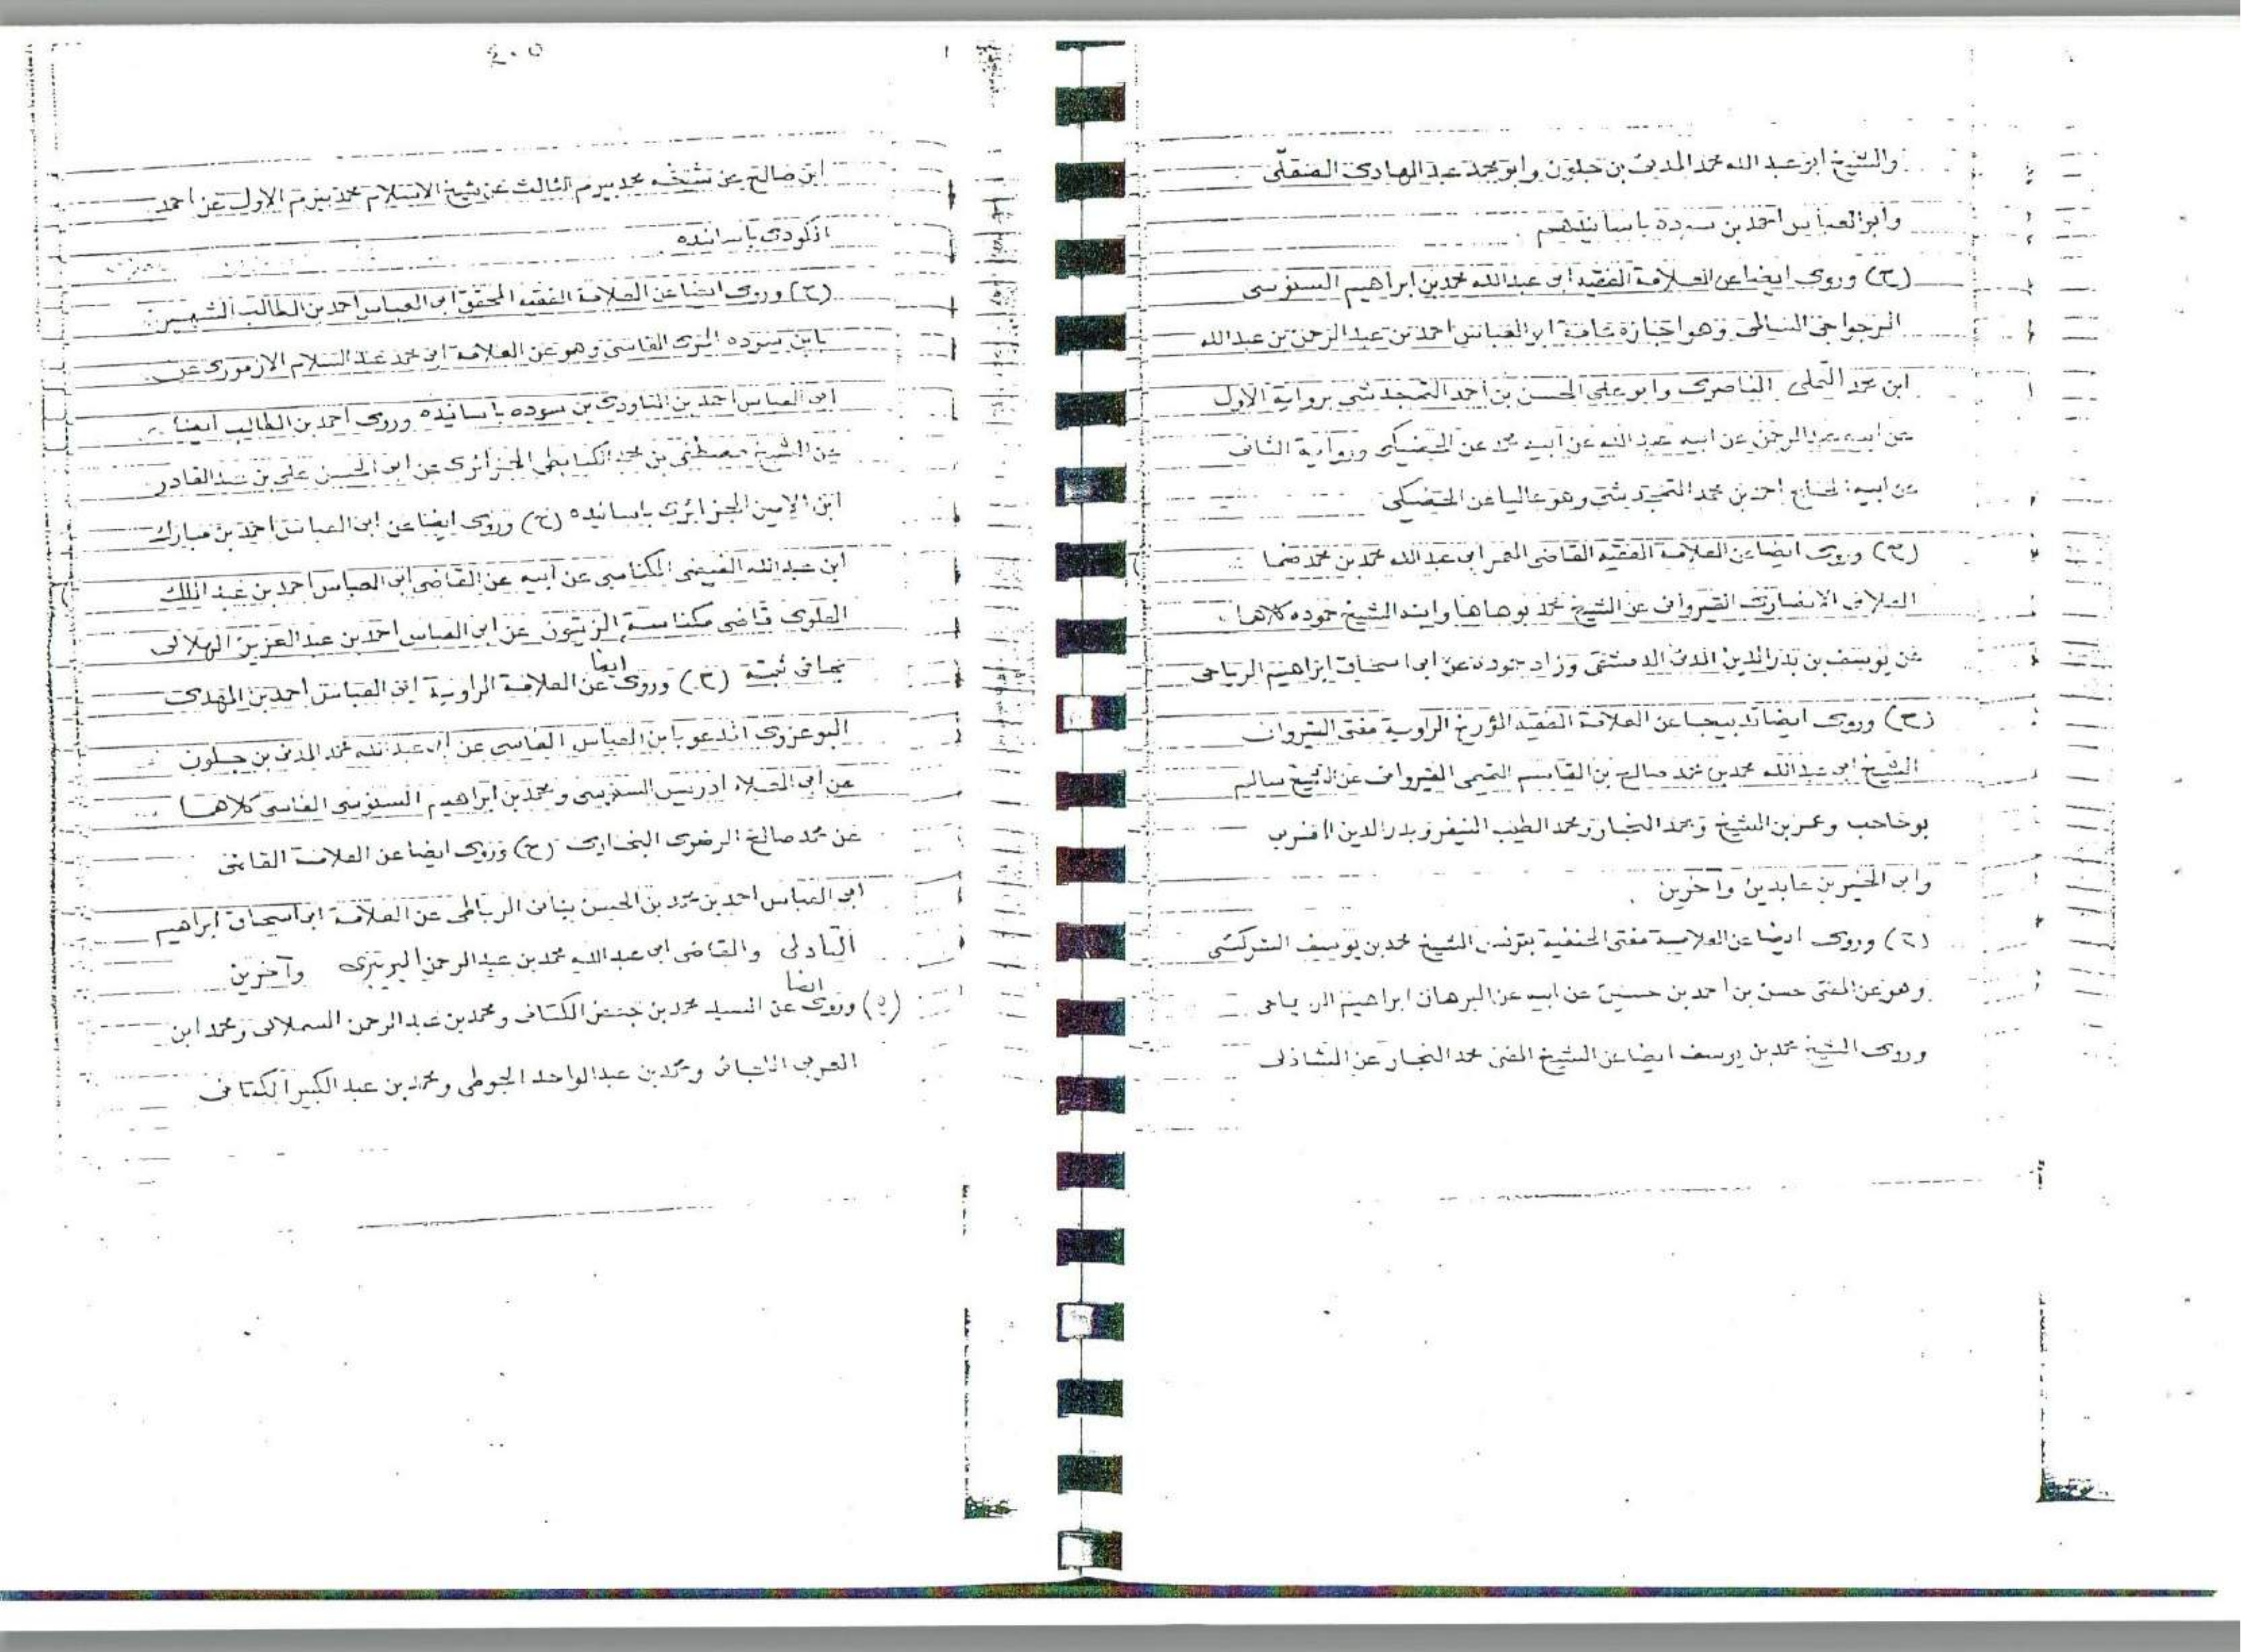 والشيخ ابو عبد الله محمد المدني بن جلون وابو محمد عبد الهادي الصقلي
وابو العباس احمد بن سودة باسانيدهم .
(ح) وروى ايضا عن العلامة الفقيه ابي عبد الله محمد بن ابراهيم السنوسي
وهو اجازة ابو العباس احمد بن عبد الرحمن بن عبد الله
ابن محمد الناصري وابو علي الحسن بن احمد التمجدشتي برواية الاول
عن ابيه عبد الرحمن عن ابيه عبد الله عن ابيه محمد عن الحضيكي ورواية الثاني
عن ابيه احمد بن محمد التمجدشتي وهو عاليا عن الحضيكي
(ح) وروى ايضا عن العلامة الفقيه القاضي المعمر ابي عبد الله محمد بن محمد
الانصاري القيرواني عن الشيخ محمد بوهاها وابنه الشيخ حموده كلاهما
عن يوسف بن بدر الدين المدني الدمشقي وزاد حموده عن ابي اسحاق ابراهيم الرياحي
(ح) وروى ايضا عن العلامة الفقيه المؤرخ الراوية مفتي القيروان
الشيخ ابي عبد الله محمد بن محمد صالح بن القاسم القيرواني عن الشيخ سالم
بوحاجب وعمر بن الشيخ ومحمد النجار ومحمد الطيب النيفر وبدر الدين
وابي الخير بن عابدين وآخرين .
(ح) وروى ايضا عن العلامة مفتي الحنفية بتونس الشيخ محمد بن يوسف التركي
وهو عن المفتي حسن بن احمد بن حسين عن ابيه عن البرهان ابراهيم الرياحي
وروى الشيخ محمد بن يوسف ايضا عن الشيخ المفتي محمد النجار عن الشاذلي
٤٠٥
ابن صالح عن شيخه محمد بيرم الثالث عن شيخ الاسلام محمد بيرم الاول عن احمد
باسانيده
(ح) وروى ايضا عن العلامة الفقيه المحقق ابي العباس احمد بن الطالب الشهير
بابن سوده المري الفاسي وهو عن العلامة ابي محمد عبد السلام الازموري عن
ابي العباس احمد بن التاودي بن سوده باسانيده وروى احمد بن الطالب ايضا
عن الشيخ مصطفى بن محمد الكبابطي الجزائري عن ابي الحسن علي بن عبد القادر
ابن الامين الجزائري باسانيده (ح) وروى ايضا عن ابي العباس احمد بن مبارك
ابن عبد الله المكناسي عن ابيه عن القاضي ابي العباس احمد بن عبد الملك
العلوي قاضي مكناسة الزيتون عن ابي العباس احمد بن عبد العزيز الهلالي
بما في ثبته (ح) وروى ايضا عن العلامة الراوية ابي العباس احمد بن المهدي
البوعزوي بابن العباس الفاسي عن ابي عبد الله محمد المدني بن جلون
عن ابي العلاء ادريس السنوسي ومحمد بن ابراهيم السنوسي الفاسي كلاهما
عن محمد صالح الرضوي البخاري (ح) وروى ايضا عن العلامة القاضي
ابي العباس احمد بن محمد بن الحسن بناني الرباطي عن العلامة ابي اسحاق ابراهيم
التادلي والقاضي ابي عبد الله محمد بن عبد الرحمن البريبري وآخرين
(ح) وروى ايضا عن السيد محمد بن جعفر الكتاني ومحمد بن عبد الرحمن السملالي ومحمد ابن
العربي ومحمد بن عبد الواحد الجوطي ومحمد بن عبد الكبير الكتاني